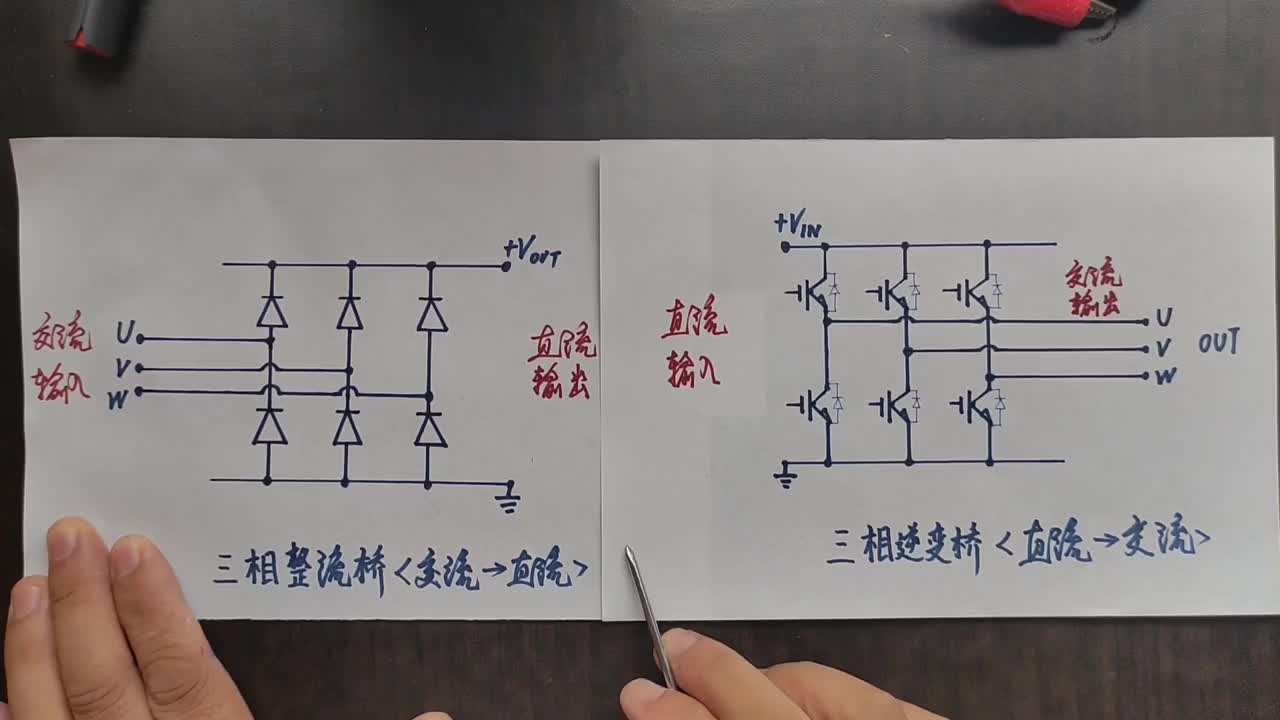 +VOUT
交流
输入
U
V
W
直流
输出
三相整流桥<交流→直流>
+VIN
直流
输入
交流
输出
U
V
W
OUT
三相逆变桥<直流→交流>